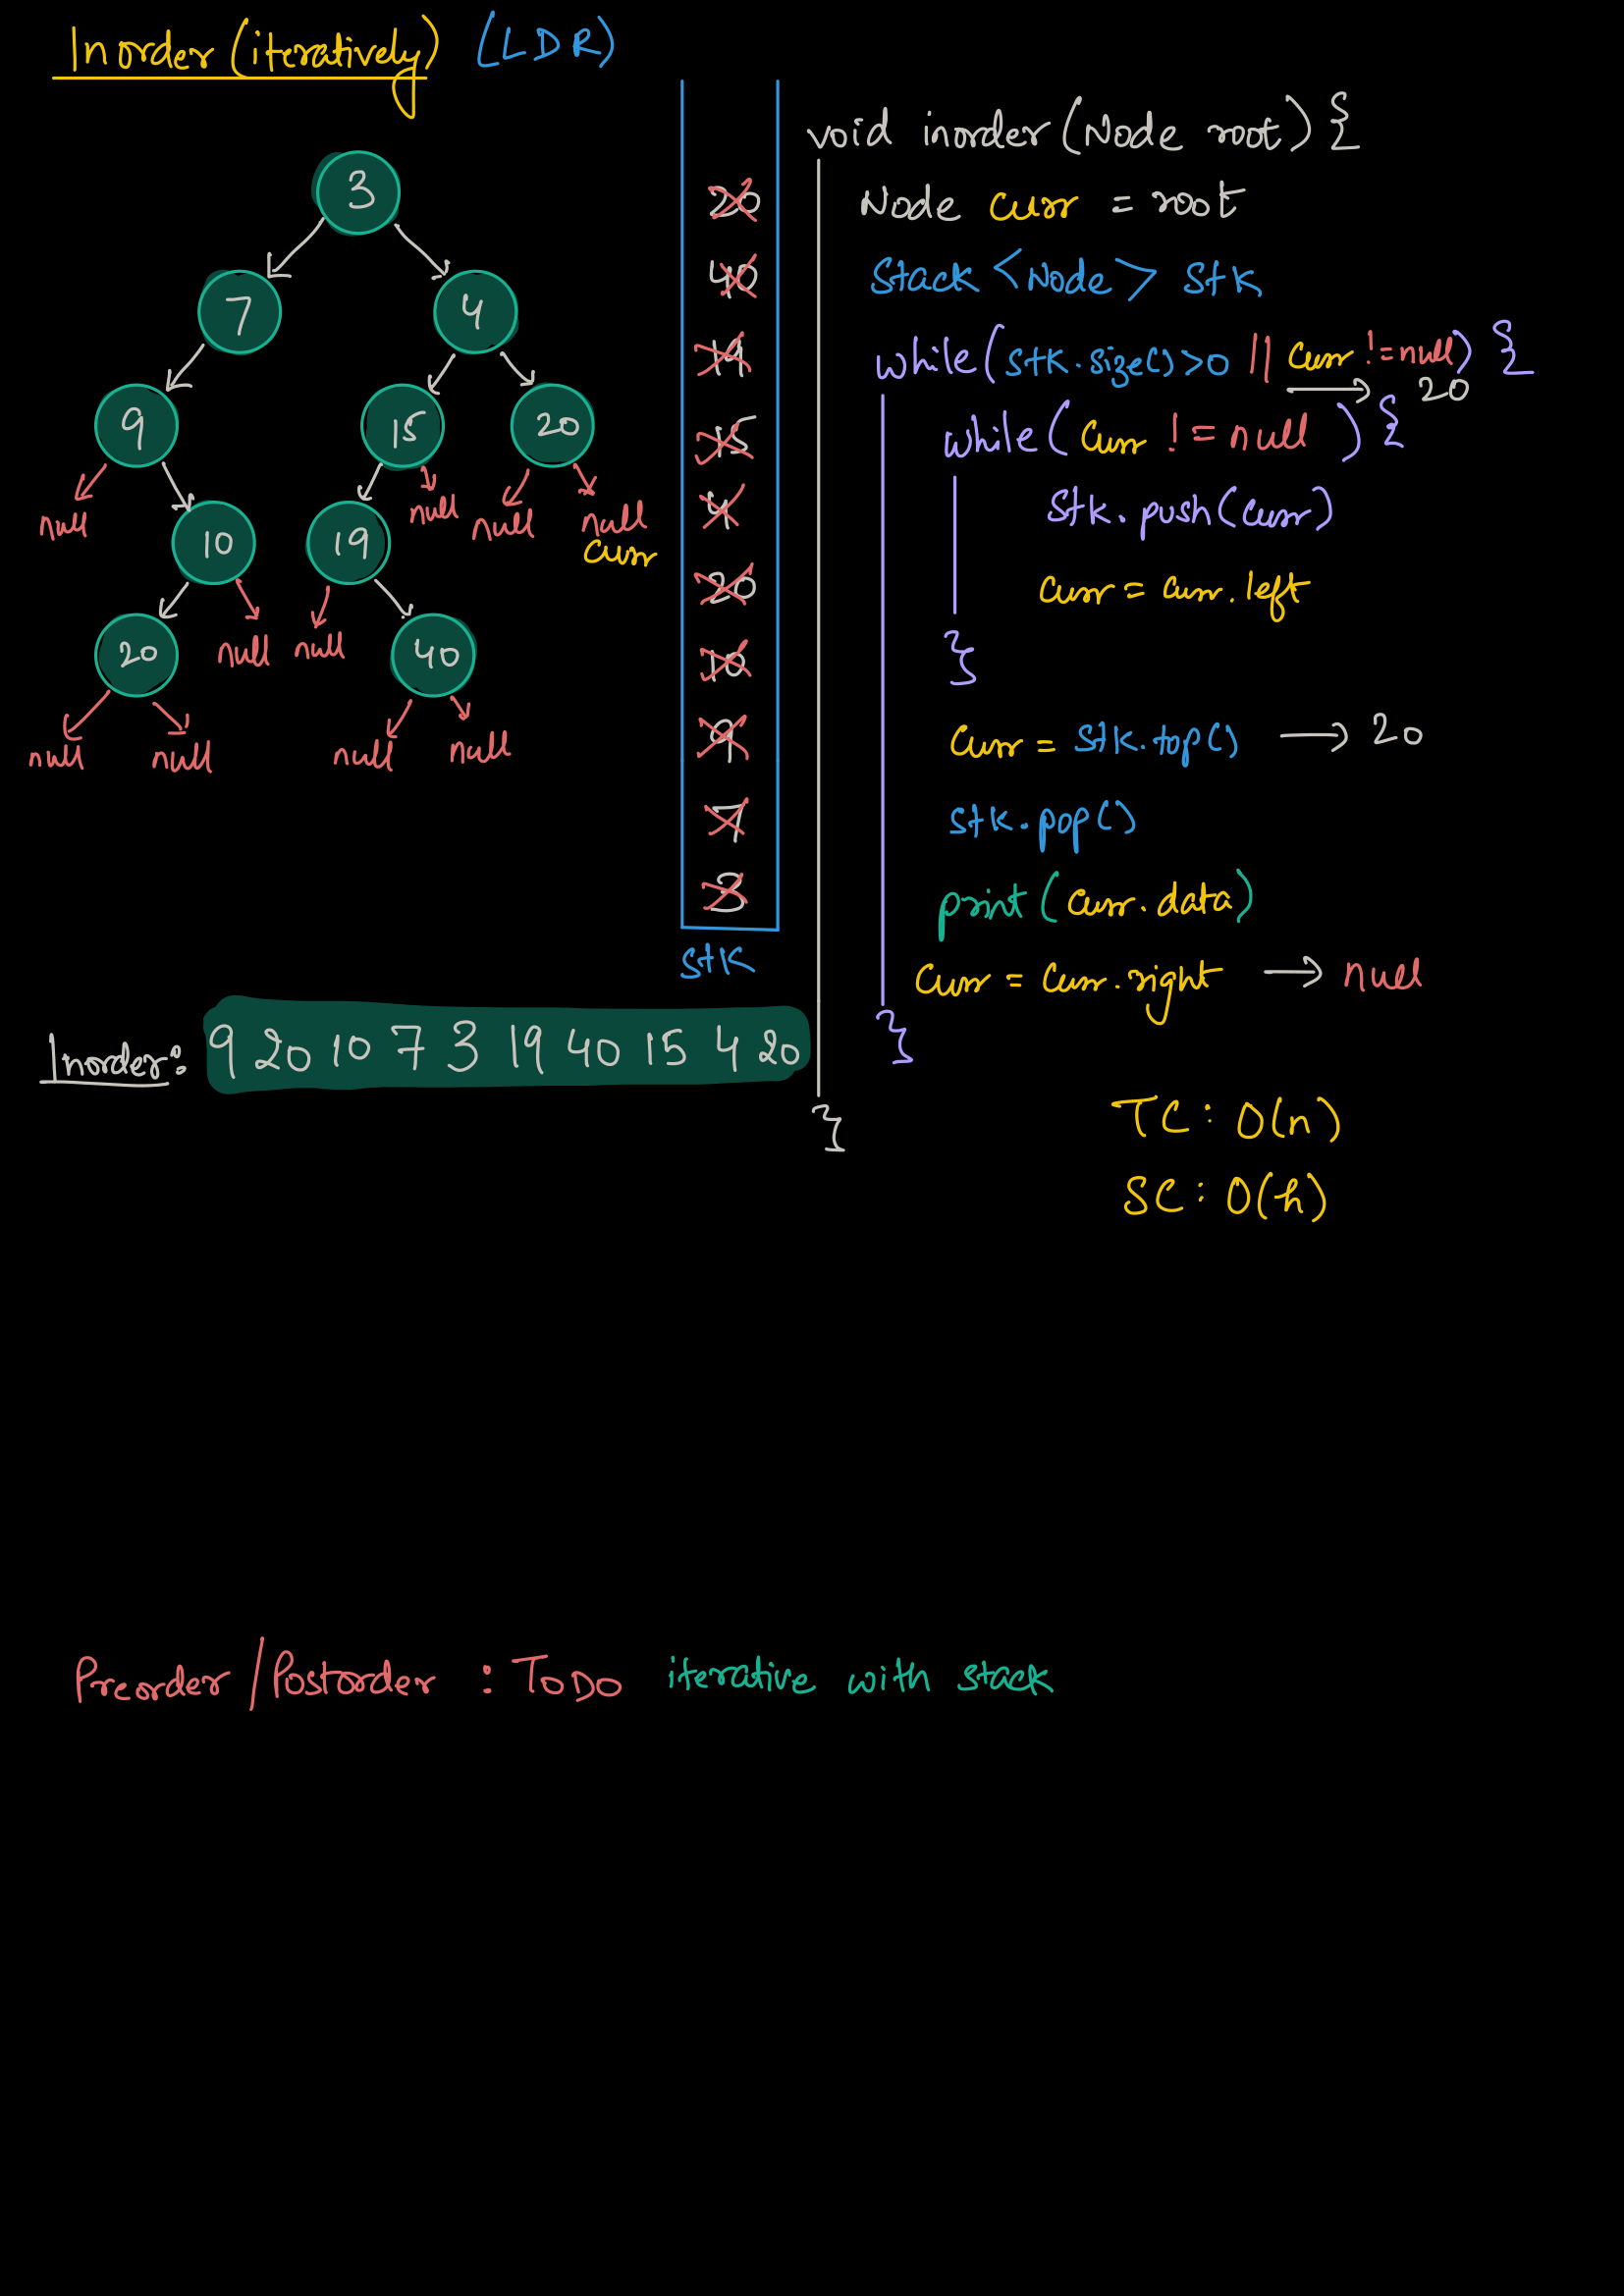 Inorder (iteratively) (LDR)
3
7 4
9 15 20
null 10 19 null null null
curr
20 null null 40
null null null null
20
40
19
15
4
20
10
9
7
3
stk
Inorder: 9 20 10 7 3 19 40 15 4 20
void inorder(Node root) {
Node curr = root
Stack <Node> stk
while(stk.size()>0 || curr !=null) {
→ 20
while( curr != null ) {
stk.push(curr)
curr = curr.left
}
curr = stk.top() → 20
stk.pop()
print(curr.data)
curr = curr.right → null
}
}
TC : O(n)
SC : O(h)
Preorder/Postorder : TODO iterative with stack